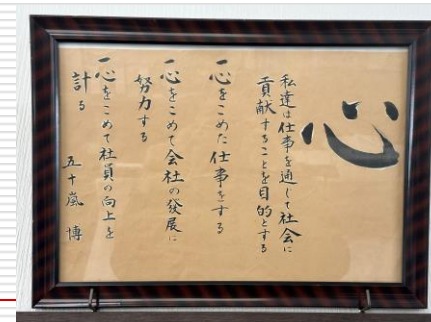 心
私達は仕事を通じて社会に
貢献することを目的とする
一、心をこめた仕事をする
一、心をこめて会社の發展に
努力する
一、心をこめて社員の向上を
計る
五十嵐 博